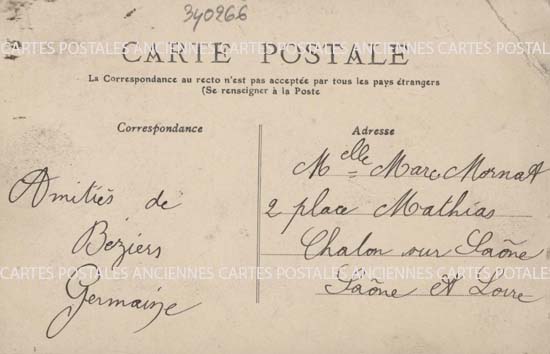 340266
CARTE POSTALE
CARTES POSTALES ANCIENNES CARTES POSTALES ANCIENNES CARTES POSTALES ANCIENNES
La Correspondance au recto n'est pas acceptée par tous les pays étrangers
(Se renseigner à la Poste
Correspondance
Amitiés de
Beziers
Germaine
Adresse
Melle Marc Mornat
2 place Mathias
Chalon sur Saône
Saône et Loire
CARTES POSTALES ANCIENNES CARTES POSTALES ANCIENNES CARTES POSTALES ANCIENNES